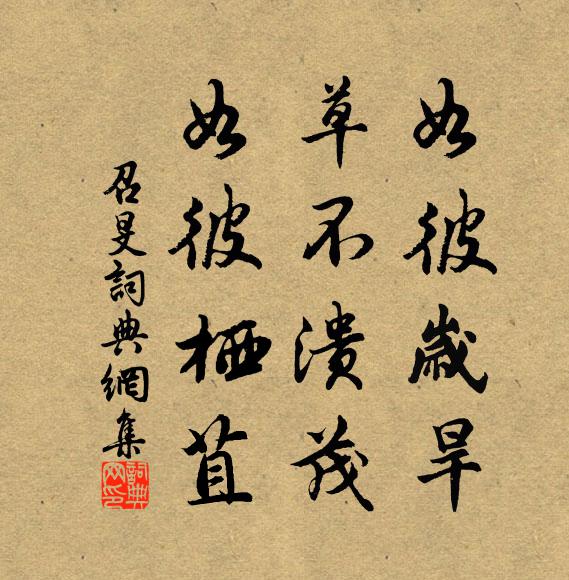 如彼歲旱
草不潰茂
如彼栖苴
召旻詞典網集
詞典
网印